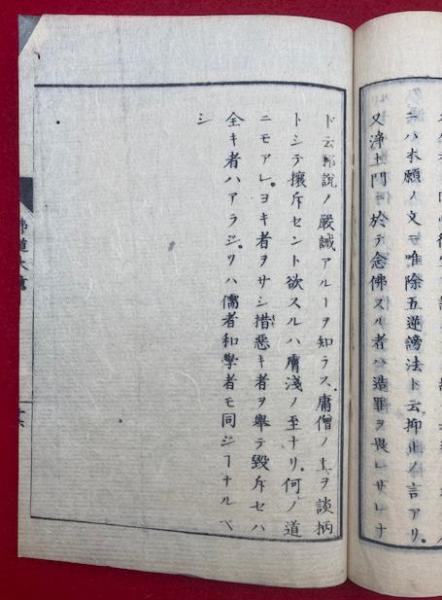 ニハ本願ノ文モ唯除五逆謗法ト云抑止ノ言アリ
又浄土門ニ於テ念佛スル者ハ造罪ヲ畏レサレナ
ド云説ノ嚴誡アルヿヲ知ラス庸僧ノ上ヲ談柄
トシテ攘斥セント欲スルハ庸淺ノ至ナリ何ノ道
ニモアレヨキ者ヲサシ措惡キ者ヲ舉テ毀斥セハ
全キ者ハアラジソハ儒者和學者モ同ジヿナルベ
シ
佛道大